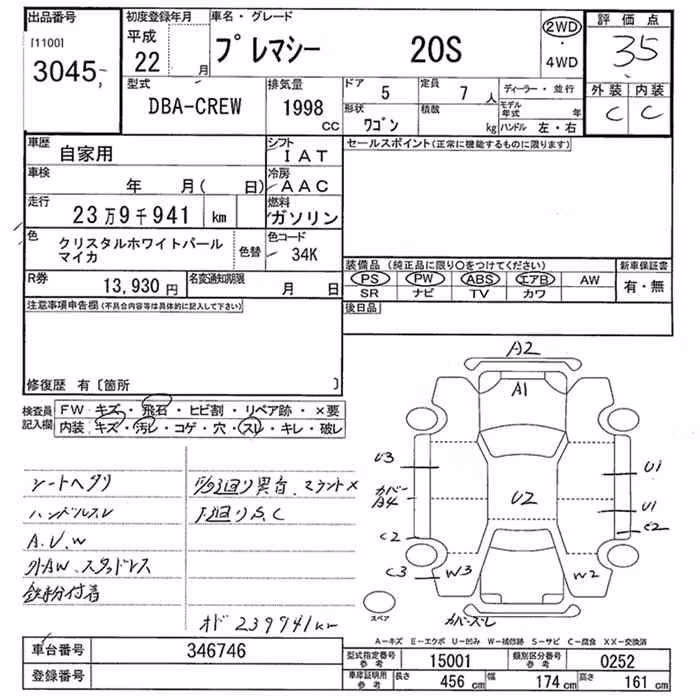 出品番号
[1100]
3045
初度登録年月
平成
22 月
車名・グレード
プレマシー 20S
2WD
・
4WD
評価点
3.5
外装 内装
C C
型式
DBA-CREW
排気量
1998 CC
ドア 5
定員 7 人
形状 ワゴン
積載 kg
ディーラー・並行
モデル年式 年
ハンドル 左・右
車歴 自家用
シフト IAT
車検 年 月( 日)
冷房 AAC
走行 23万9千941 km
燃料 ガソリン
色 クリスタルホワイトパールマイカ
色替
色コード 34K
R券 13,930 円
名変通知期限 月 日
セールスポイント(正常に機能するものに限ります)
装備品 (純正品に限り○をつけてください)
PS PW ABS エアB AW
SR ナビ TV カワ
新車保証書
有・無
後日品
注意事項申告欄(不具合内容等は具体的に記入して下さい)
修復歴 有〔箇所 〕
検査員記入欄
FW キズ・飛石・ヒビ割・リペア跡・×要
内装 キズ・汚レ・コゲ・穴・スレ・キレ・破レ
シートヘタリ
ハンドルスレ
A.U.W
外AW、スタッドレス
鉄粉付着
下廻りS、C
オド 239941km
A2
A1
U3
U1
カバーA4
U2
U1
C2
C2
C3
W3
W2
スペア
カバーズレ
A-キズ E-エクボ U-凹み W-補修跡 S-サビ C-腐食 XX-交換済
車台番号 346746
登録番号
型式指定番号参考 15001
類別区分番号参考 0252
車庫証明用参考 長さ 456 cm 幅 174 cm 高さ 161 cm